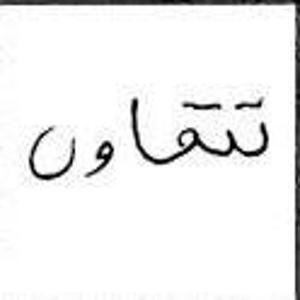 تتعاون